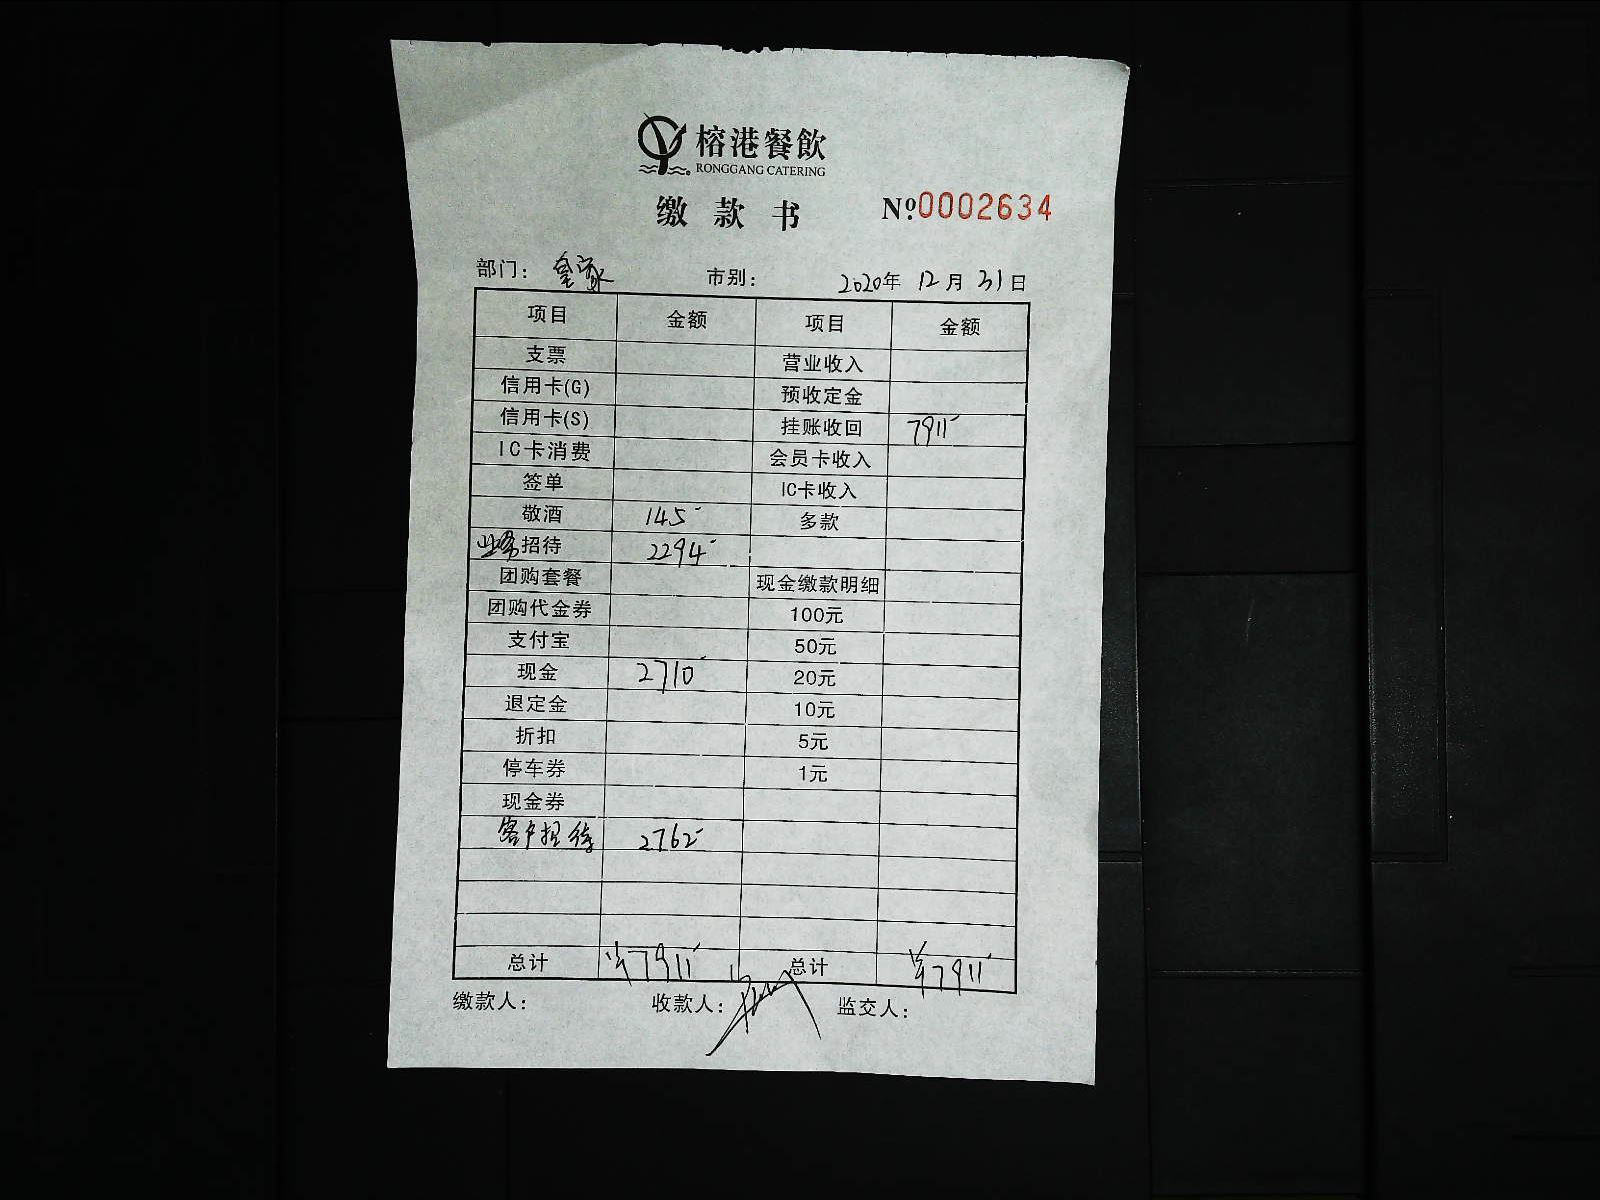 榕港餐飲
RONGGANG CATERING
缴款书 Nº0002634
部门：皇家 市别： 2020年 12月 31日
项目 金额 项目 金额
支票 营业收入
信用卡(G) 预收定金
信用卡(S) 挂账收回 7911
IC卡消费 会员卡收入
签单 IC卡收入
敬酒 145 多款
业务招待 2294
团购套餐 现金缴款明细
团购代金券 100元
支付宝 50元
现金 2710 20元
退定金 10元
折扣 5元
停车券 1元
现金券
客户招待 2762
总计 ¥7911 总计 ¥7911
缴款人： 收款人： 监交人：